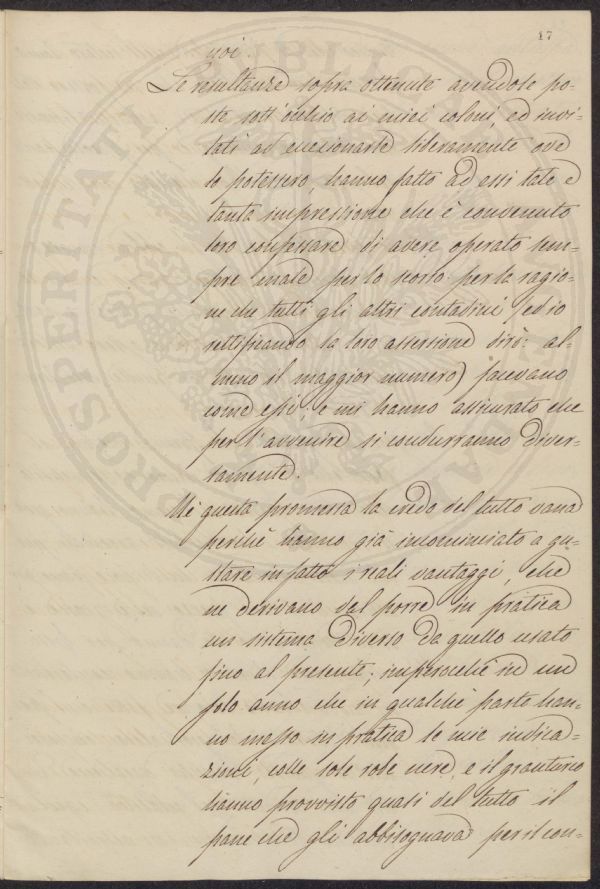 17
noi.
Le resultanze sopra ottenute avendole po-
ste sott'occhio ai miei coloni ed invi-
tati ad eccezionarle liberamente ove
lo potessero, hanno fatto ad essi tale e
tanta impressione che è convenuto
loro confessare di avere operato sem-
pre male per lo scorso per la ragio-
ne che tutti gli altri contadini (ed io
rettificando la loro asserzione dirò: al-
meno il maggior numero) facevano
come essi; e mi hanno assicurato che
per l'avvenire si condurranno diver-
samente.
Nè questa promessa la credo del tutto vana
perchè hanno già incominciato a gu-
stare in fatto i reali vantaggi, che
ne derivano dal porre in pratica
un sistema diverso da quello usato
fino al presente; imperocchè in un
solo anno che in qualche parte han-
no messo in pratica le mie indica-
zioni, colle sole robe nere, e il granturco
hanno provvisto quasi del tutto il
pane che gli abbisognava per il con-
PROSPERITATI PUBLICAE